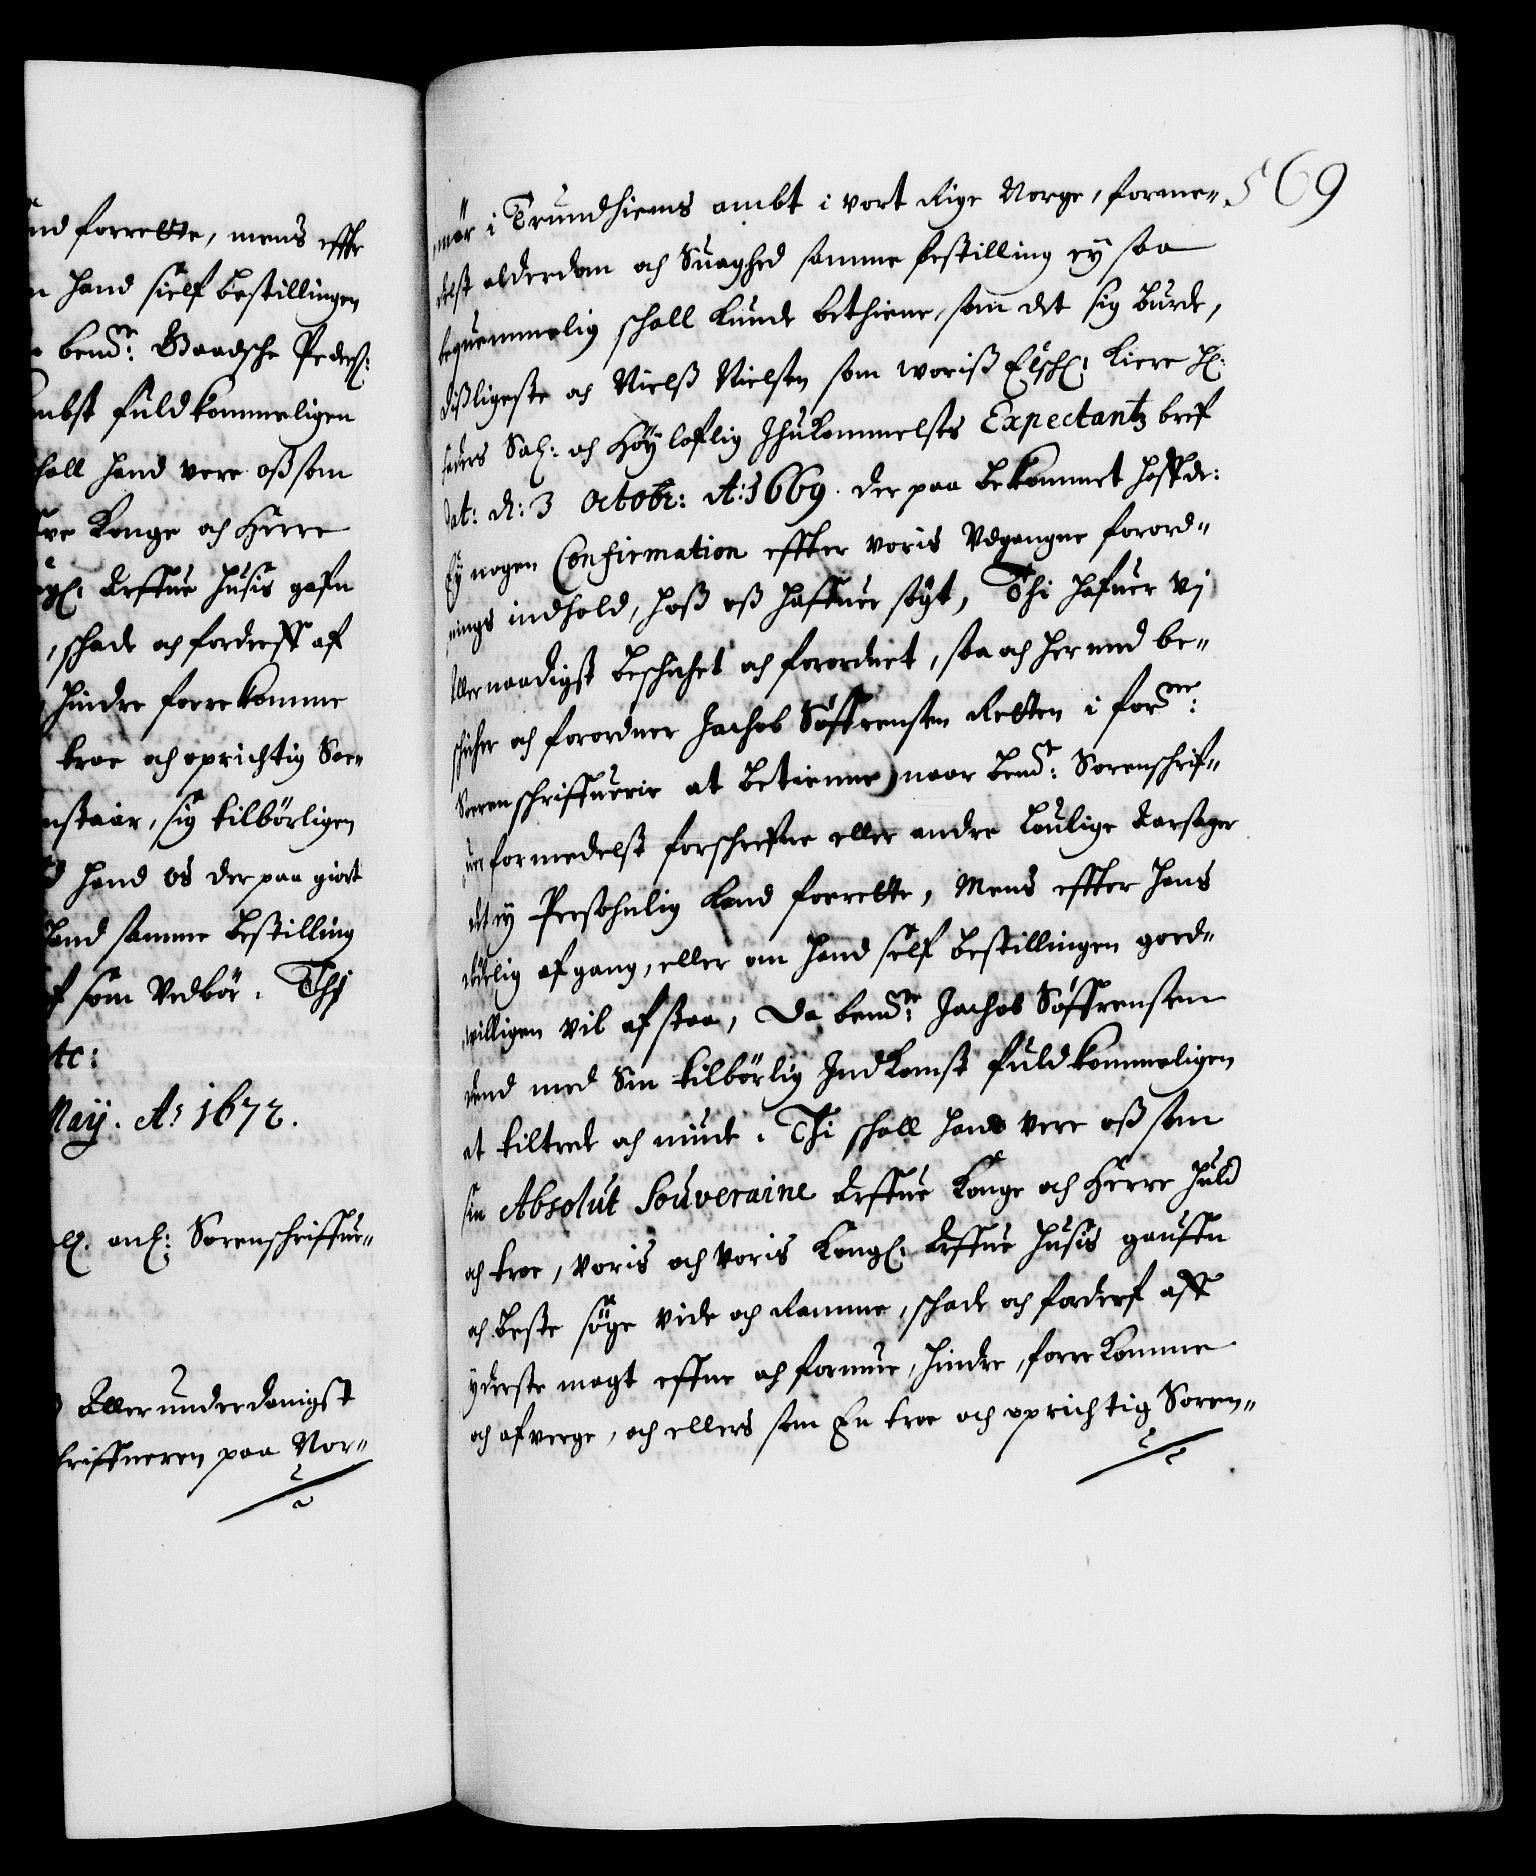 nd forrette, mens effte
n hand sielf bestillingen
bend.te Baadsche Peders:
ombst fuldkommeligen
shall hand vere oss som
ffve Konge och Herre
ngl: Arffue husis gafn
, schade och forderff af
hindre forrekomme
troe och oprichtig Sor-
nstaar, sig tilbörligen
d hand os der paa giort
hand samme bestilling
f som vedbör. Thj
tc:
May. Ao 1672.
ll. anl: Sorenschriffue-
Allerunderdanigst
kriffueren paa Nor-
569
mör i Trundhiems ambt i vort Rige Norge, forme-
delst alderdom och Suaghed samme bestilling ey saa
bequemmelig schall kunde bethiene, som det sig burde,
disligeste och Nielss Nielsen som woriss Elschl: kiere Hl:
faders Sal: och Höyloflig Ihukommelsts Expectantz bref
dat: d: 3 Octobr: A: 1669. der paa bekommet hoffde:
Ey nogen Confirmation effter voris Udgangne forord-
nings indhold, hoss oss haffuer sögt, Thi hafuer Vj
Allernaadigst beschichet och forordnet, saa och hermed be-
schicher och forordner Jachob Söffrensen Retten i for.ne:
Sorenschriffuerie at betienne) naar bend.te: Sorenschrif-
uer formedelst forschrefne eller andre Loulige Aarsager
det ey Persohnlig kand forrette, Mens effter hans
dödelig afgang, eller om hand self bestillingen goed-
willigen vil afstaa, da bend.te: Jachob Söffrensen
dend med Sin tilbörlig Indkomst fuldkommeligen
at tiltrede och niude. Thi schall hand vere oss som
sin Absolut Souveraine Arffue Konge och Herre huld
och troe, voris och voris Kongl: Arffue Husis gauffn
och beste söge vide och Ramme, schade och forderf aff
yderste magt effne och formue, hindre, forrekomme
och afverge, och ellers som En troe och oprichtig Soren-